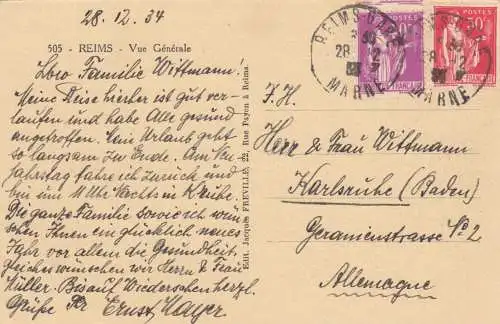 28.12.34
505 - REIMS - Vue Générale
Lbro Familie Wittmann!
Meine Reise hierher ist gut ver-
laufen und habe Alle gesund
angetroffen. Ein Urlaub geht
so langsam zu Ende. Am Neu-
jahrstag fahre ich zurück und
bin um 11 Uhr Nachts in K'ruhe.
Die ganze Familie sowie ich wün-
schen Ihnen ein glücklich neues
Jahr vor allem die Gesundheit.
Gleiches wünschen wir Herrn & Frau
Müller. Bis auf Wiedersehen herzl.
Grüße Ihr Ernst Mayer
Edit. Jacques FREVILLE, 22, Rue Payen à Reims
REIMS-GARE
28
MARNE
POSTES
FRANÇAISE
50
MARNE
F. H.
Herr & Frau Wittmann
Karlsruhe (Baden)
Geranienstrasse No 2
Allemagne